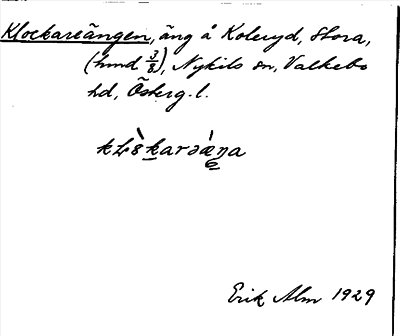 Klockareängen, äng å Koleryd, Stora,
(hmd 3/8), Nykils sn, Valkebo
hd, Österg. l.
Erik Alm 1929